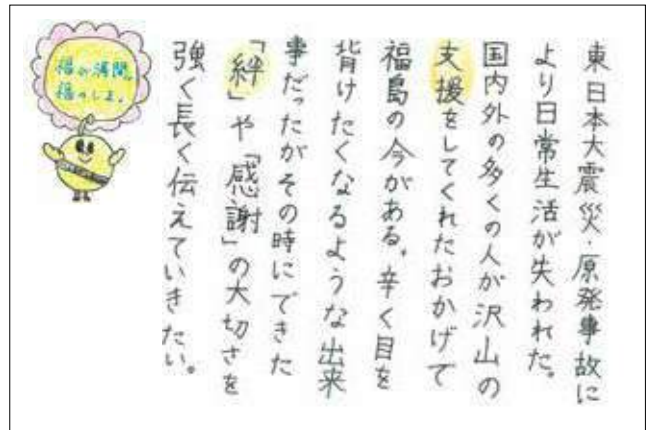 東日本大震災・原発事故に
より日常生活が失われた。
国内外の多くの人が沢山の
支援をしてくれたおかげで
福島の今がある。辛く目を
背けたくなるような出来
事だったがその時にできた
「絆」や「感謝」の大切さを
強く長く伝えていきたい。
福が満開、
福のしま。